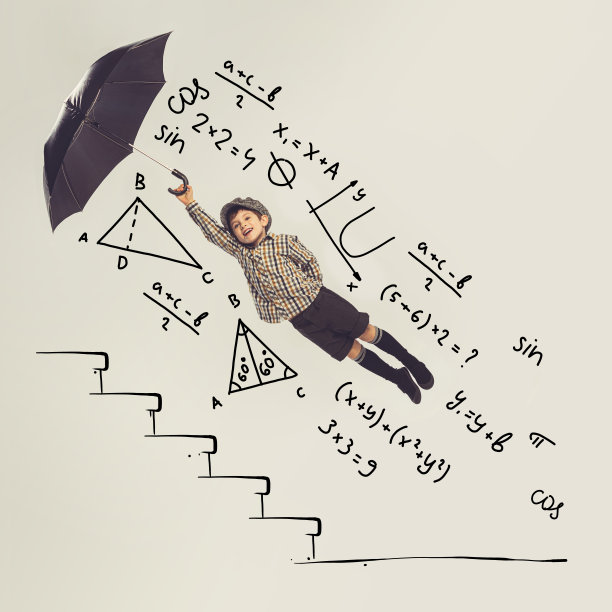 cos
a+c-b
2
sin
2×2=4
x₁=x+A
Ø
y
x
B
A
D
C
a+c-b
2
a+c-b
2
B
60°
60°
A
C
(5+6)×2=?
sin
(x+y)+(x²+y²)
3×3=9
y₁=y+b
π
cos